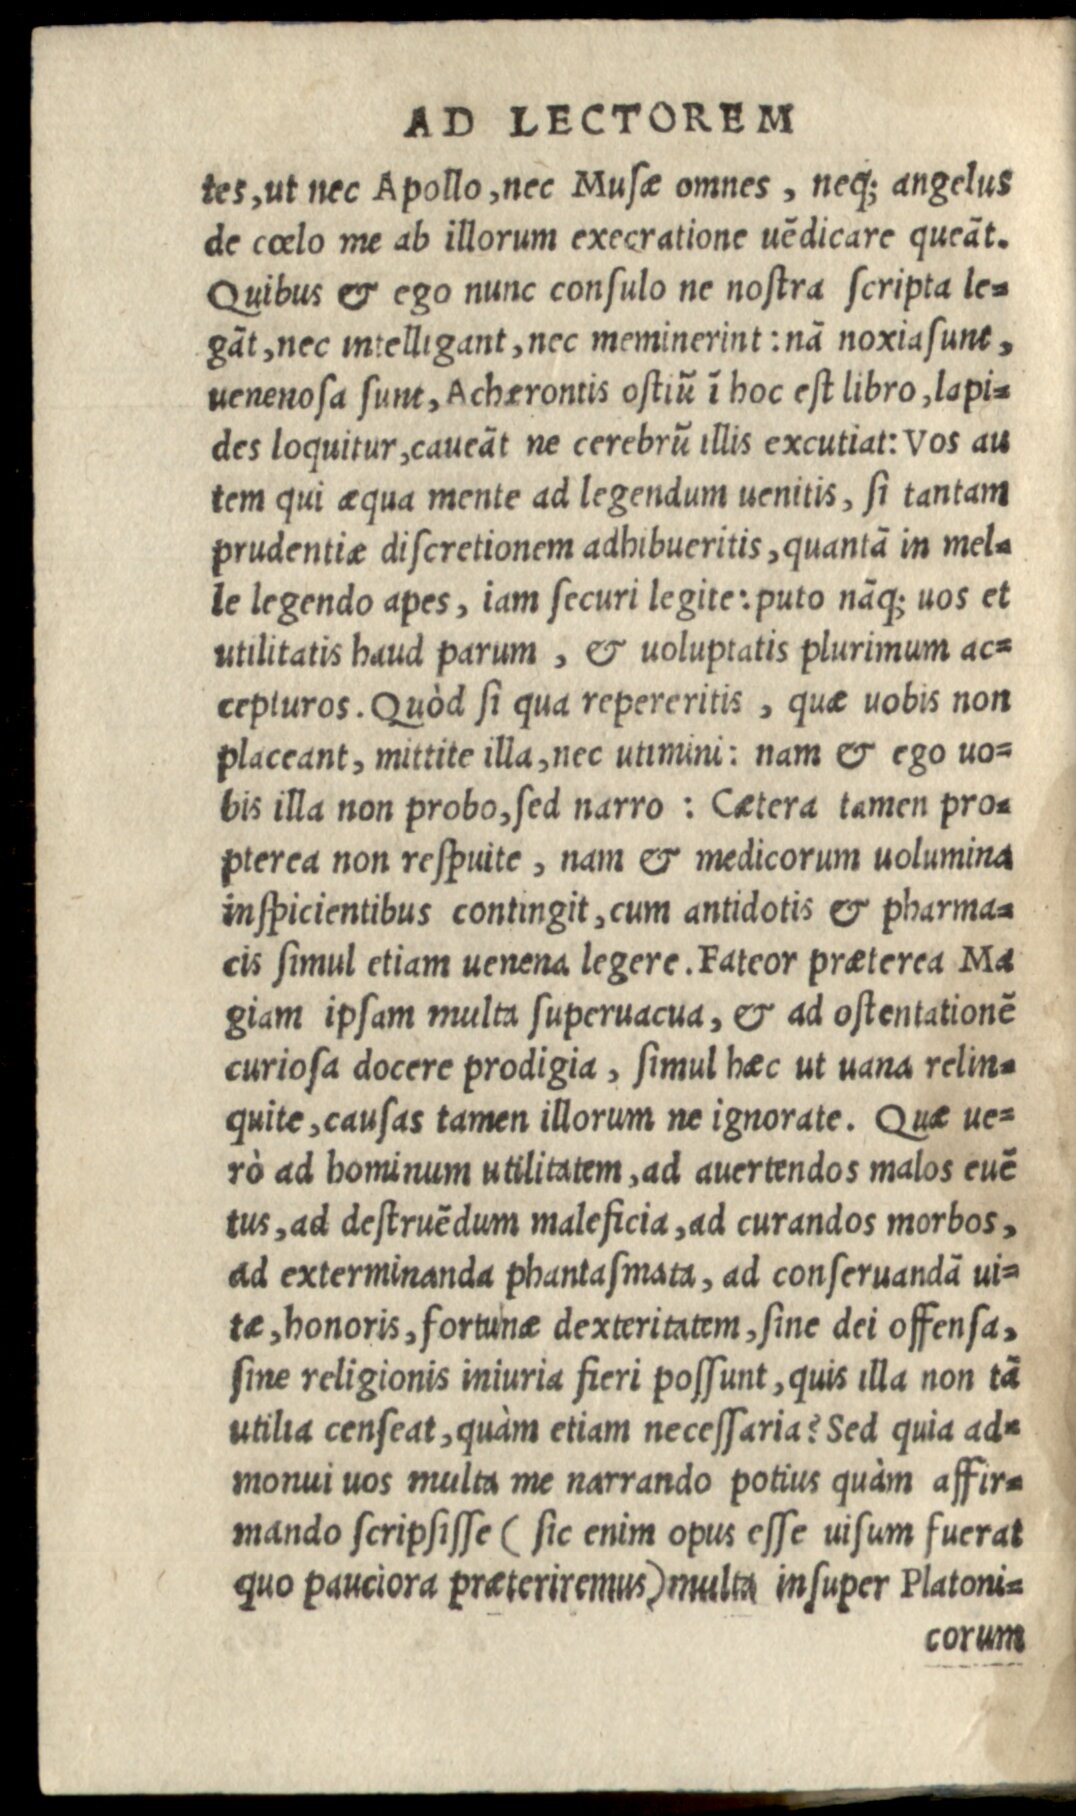 AD LECTOREM
tes, ut nec Apollo, nec Musæ omnes, neq; angelus
de cœlo me ab illorum execratione uẽdicare queãt.
Quibus & ego nunc consulo ne nostra scripta le=
gãt, nec intelligant, nec meminerint: nã noxia sunt,
uenenosa sunt, Acherontis ostiũ ĩ hoc est libro, lapi=
des loquitur, caueãt ne cerebrũ illis excutiat: Vos au
tem qui æqua mente ad legendum uenitis, si tantam
prudentiæ discretionem adhibueritis, quantã in mel=
le legendo apes, iam securi legite: puto nãq; uos et
utilitatis haud parum, & uoluptatis plurimum ac=
cepturos. Quòd si qua repereritis, quæ uobis non
placeant, mittite illa, nec utimini: nam & ego uo=
bis illa non probo, sed narro: Cætera tamen pro=
pterea non respuite, nam & medicorum uolumina
inspicientibus contingit, cum antidotis & pharma=
cis simul etiam uenena legere. Fateor præterea Ma
giam ipsam multa superuacua, & ad ostentationẽ
curiosa docere prodigia, simul hæc ut uana relin=
quite, causas tamen illorum ne ignorate. Quæ ue=
rò ad hominum utilitatem, ad auertendos malos euẽ
tus, ad destruẽdum maleficia, ad curandos morbos,
ad exterminanda phantasmata, ad conseruandã ui=
tæ, honoris, fortunæ dexteritatem, sine dei offensa,
sine religionis iniuria fieri possunt, quis illa non tã
utilia censeat, quàm etiam necessaria? Sed quia ad=
monui uos multa me narrando potius quàm affir=
mando scripsisse (sic enim opus esse uisum fuerat
quo pauciora præteriremus) multa insuper Platoni=
corum